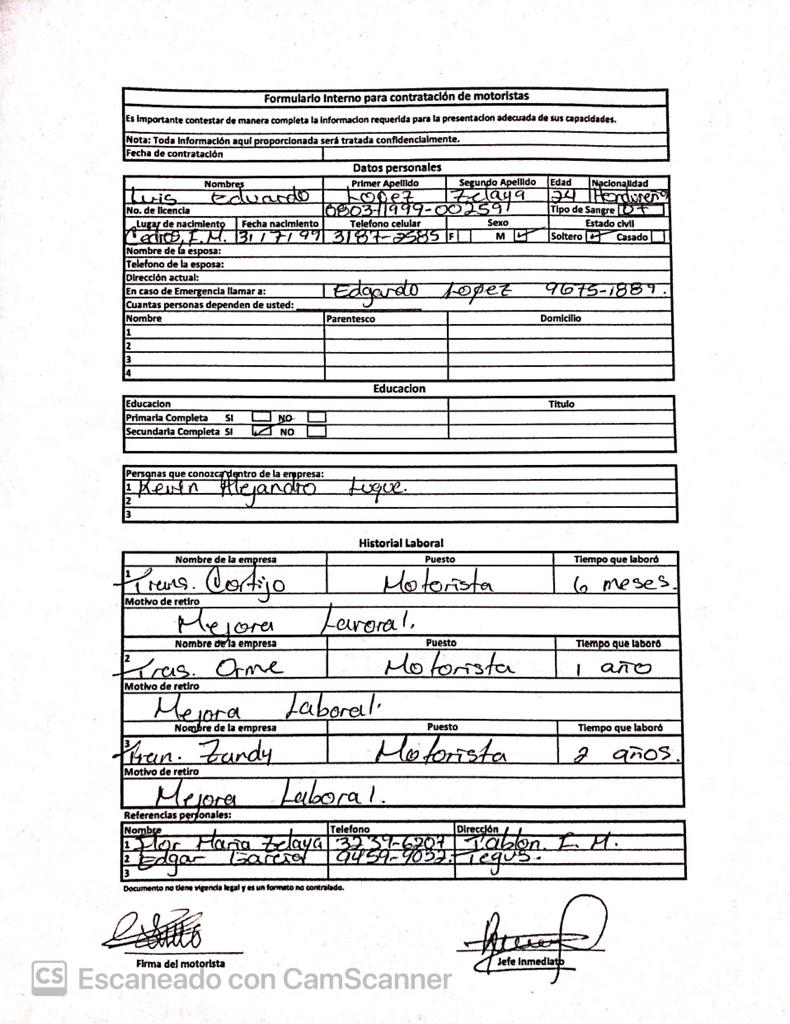 Formulario Interno para contratación de motoristas
Es Importante contestar de manera completa la informacion requerida para la presentacion adecuada de sus capacidades.
Nota: Toda información aquí proporcionada será tratada confidencialmente.
Fecha de contratación
Datos personales
Nombres Primer Apellido Segundo Apellido Edad Nacionalidad
Luis Eduardo Lopez Zelaya 24 Hondureña
No. de licencia 0803-1999-002591 Tipo de Sangre O+
Lugar de nacimiento Fecha nacimiento Telefono celular Sexo Estado civil
Cedros, F.M. 31/7/99 3187-2585 F M Soltero Casado
Nombre de la esposa:
Telefono de la esposa:
Dirección actual:
En caso de Emergencia llamar a: Edgardo Lopez 9675-1889.
Cuantas personas dependen de usted:
Nombre Parentesco Domicilio
1
2
3
4
Educacion
Educacion Titulo
Primaria Completa SI NO
Secundaria Completa SI NO
Personas que conozca dentro de la empresa:
1 Kevin Alejandro Luque.
2
3
Historial Laboral
Nombre de la empresa Puesto Tiempo que laboró
1 Trans. Cortijo Motorista 6 meses.
Motivo de retiro
Mejora Lavoral.
Nombre de la empresa Puesto Tiempo que laboró
2 Tras. Orme Motorista 1 año
Motivo de retiro
Mejora Laboral.
Nombre de la empresa Puesto Tiempo que laboró
3 Tran. Zandy Motorista 2 años.
Motivo de retiro
Mejora Laboral.
Referencias personales:
Nombre Telefono Dirección
1 Flor Maria Zelaya 3239-6207 Tablon. F. M.
2 Edgar Garcia 9459-9032. Tegus.
3
Documento no tiene vigencia legal y es un formato no controlado.
Firma del motorista Jefe Inmediato
CS Escaneado con CamScanner